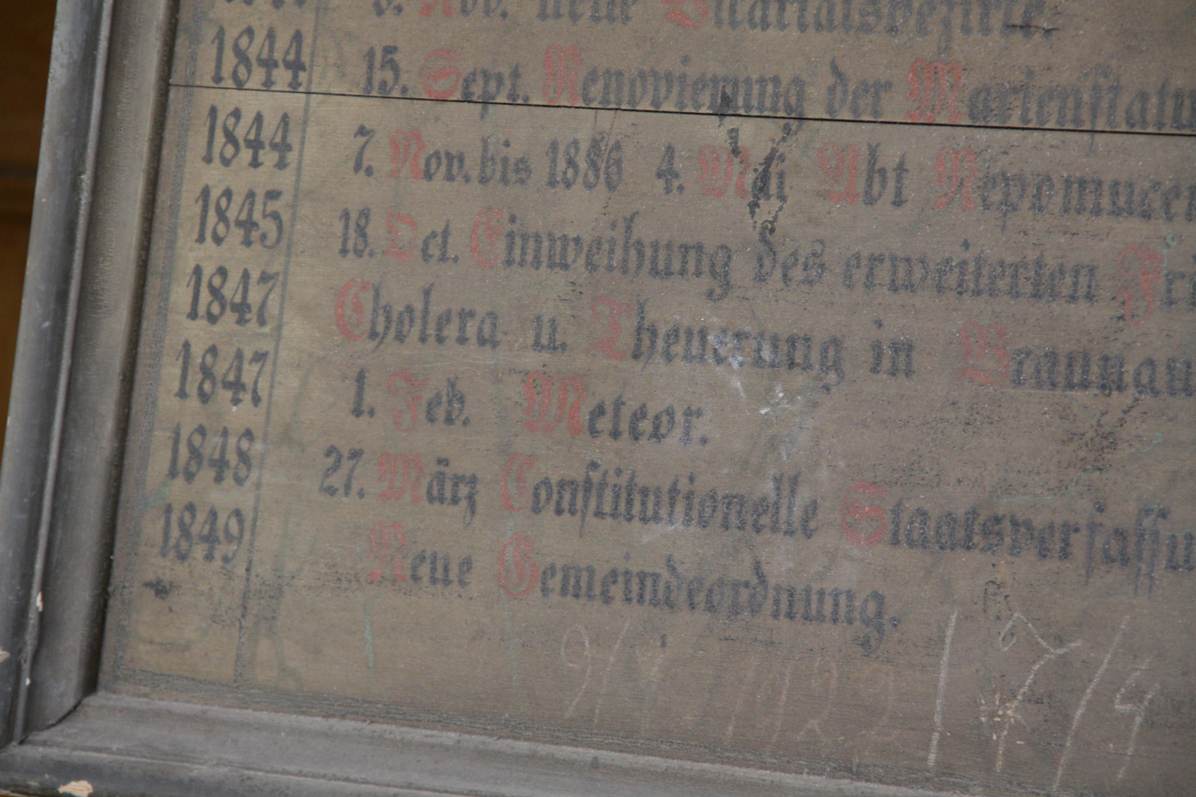 Nov. neue Vikariatsbezirke.
1844 15. Sept. Renovierung der Marienstatu
1844 7. Nov. bis 1886 4. Mai Abt Nepomucen
1845 18. Oct. Einweihung des erweiterten Fri
1847 Cholera u. Theuerung in Braunau
1847 1. Feb. Meteor.
1848 27. März Constitutionelle Staatsverfassu
1849 Neue Gemeindeordnung.